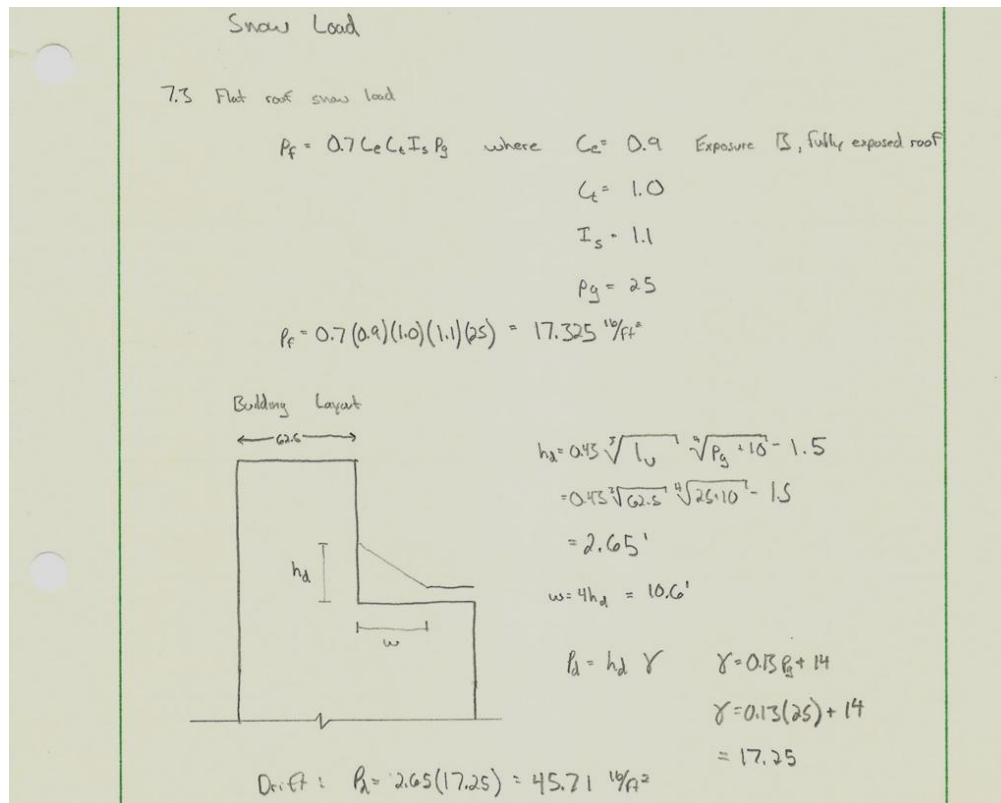 Snow Load
7.3 Flat roof snow load
Pf = 0.7 Ce Ct Is Pg where Ce = 0.9 Exposure B, fully exposed roof
Ct = 1.0
Is = 1.1
Pg = 25
Pf = 0.7 (0.9)(1.0)(1.1)(25) = 17.325 lb/ft²
Building Layout
62.5
hd = 0.43 ∛lu ∜Pg + 10 - 1.5
= 0.43 ∛62.5 ∜25+10 - 1.5
= 2.65'
hd
w = 4hd = 10.6'
w
Pd = hd γ γ = 0.13 Pg + 14
γ = 0.13(25) + 14
= 17.25
Drift: Pd = 2.65(17.25) = 45.71 lb/ft²